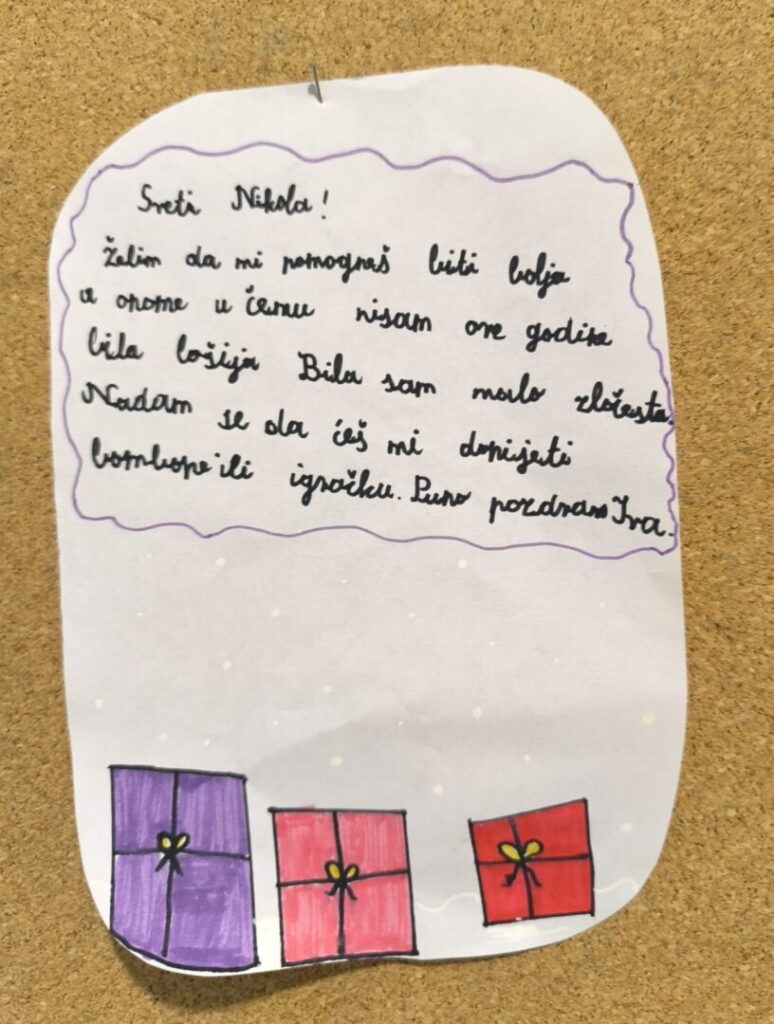 Sveti Nikola!
Želim da mi pomogneš biti bolja
u onome u čemu nisam ove godine
bila lošija Bila sam malo zločesta.
Nadam se da ćeš mi donijeti
bombone ili igračku. Puno pozdrava Iva.